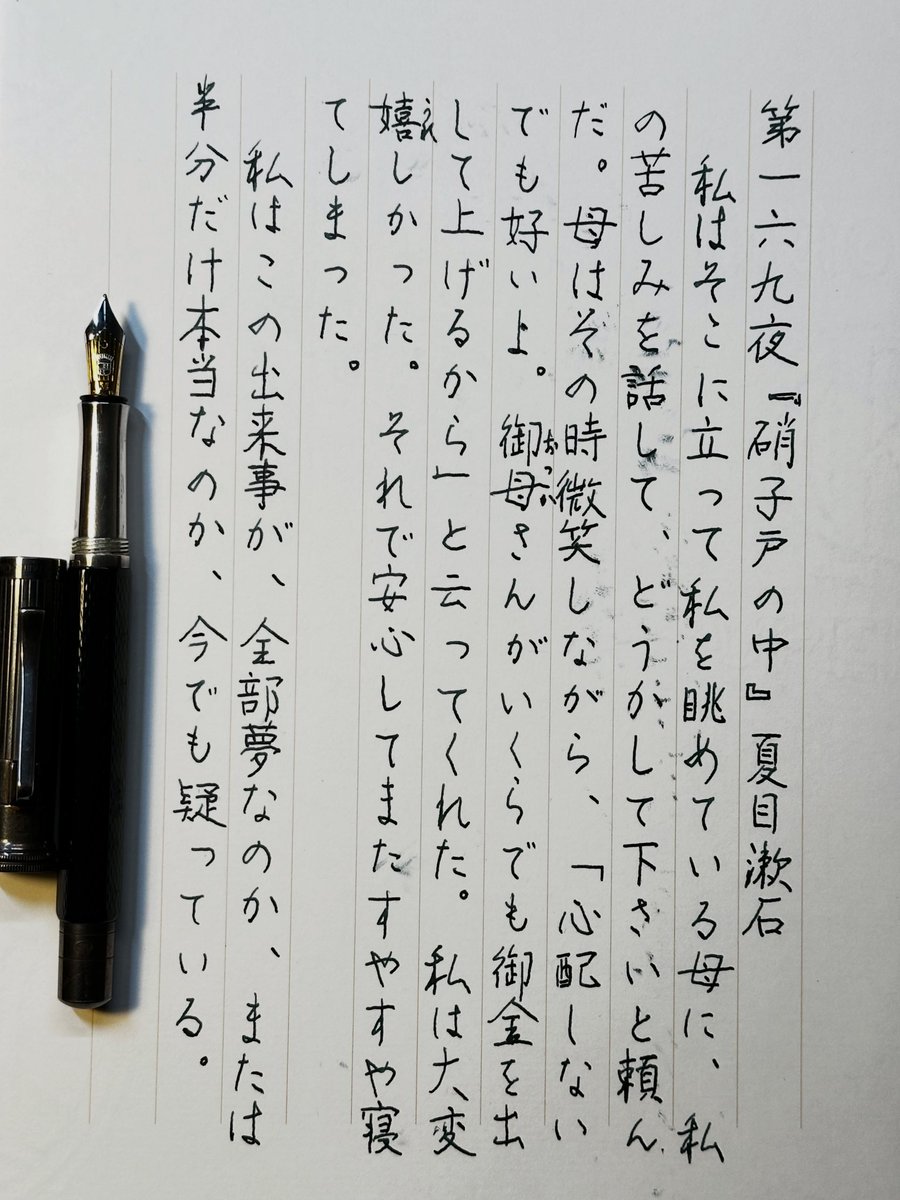 第一六九夜『硝子戸の中』夏目漱石
私はそこに立って私を眺めている母に、私
の苦しみを話して、どうかして下さいと頼ん
だ。母はその時微笑しながら、「心配しない
でも好いよ。御母さんがいくらでも御金を出
おっか
して上げるから」と云ってくれた。私は大変
嬉しかった。それで安心してまたすやすや寝
うれ
てしまった。
私はこの出来事が、全部夢なのか、または
半分だけ本当なのか、今でも疑っている。